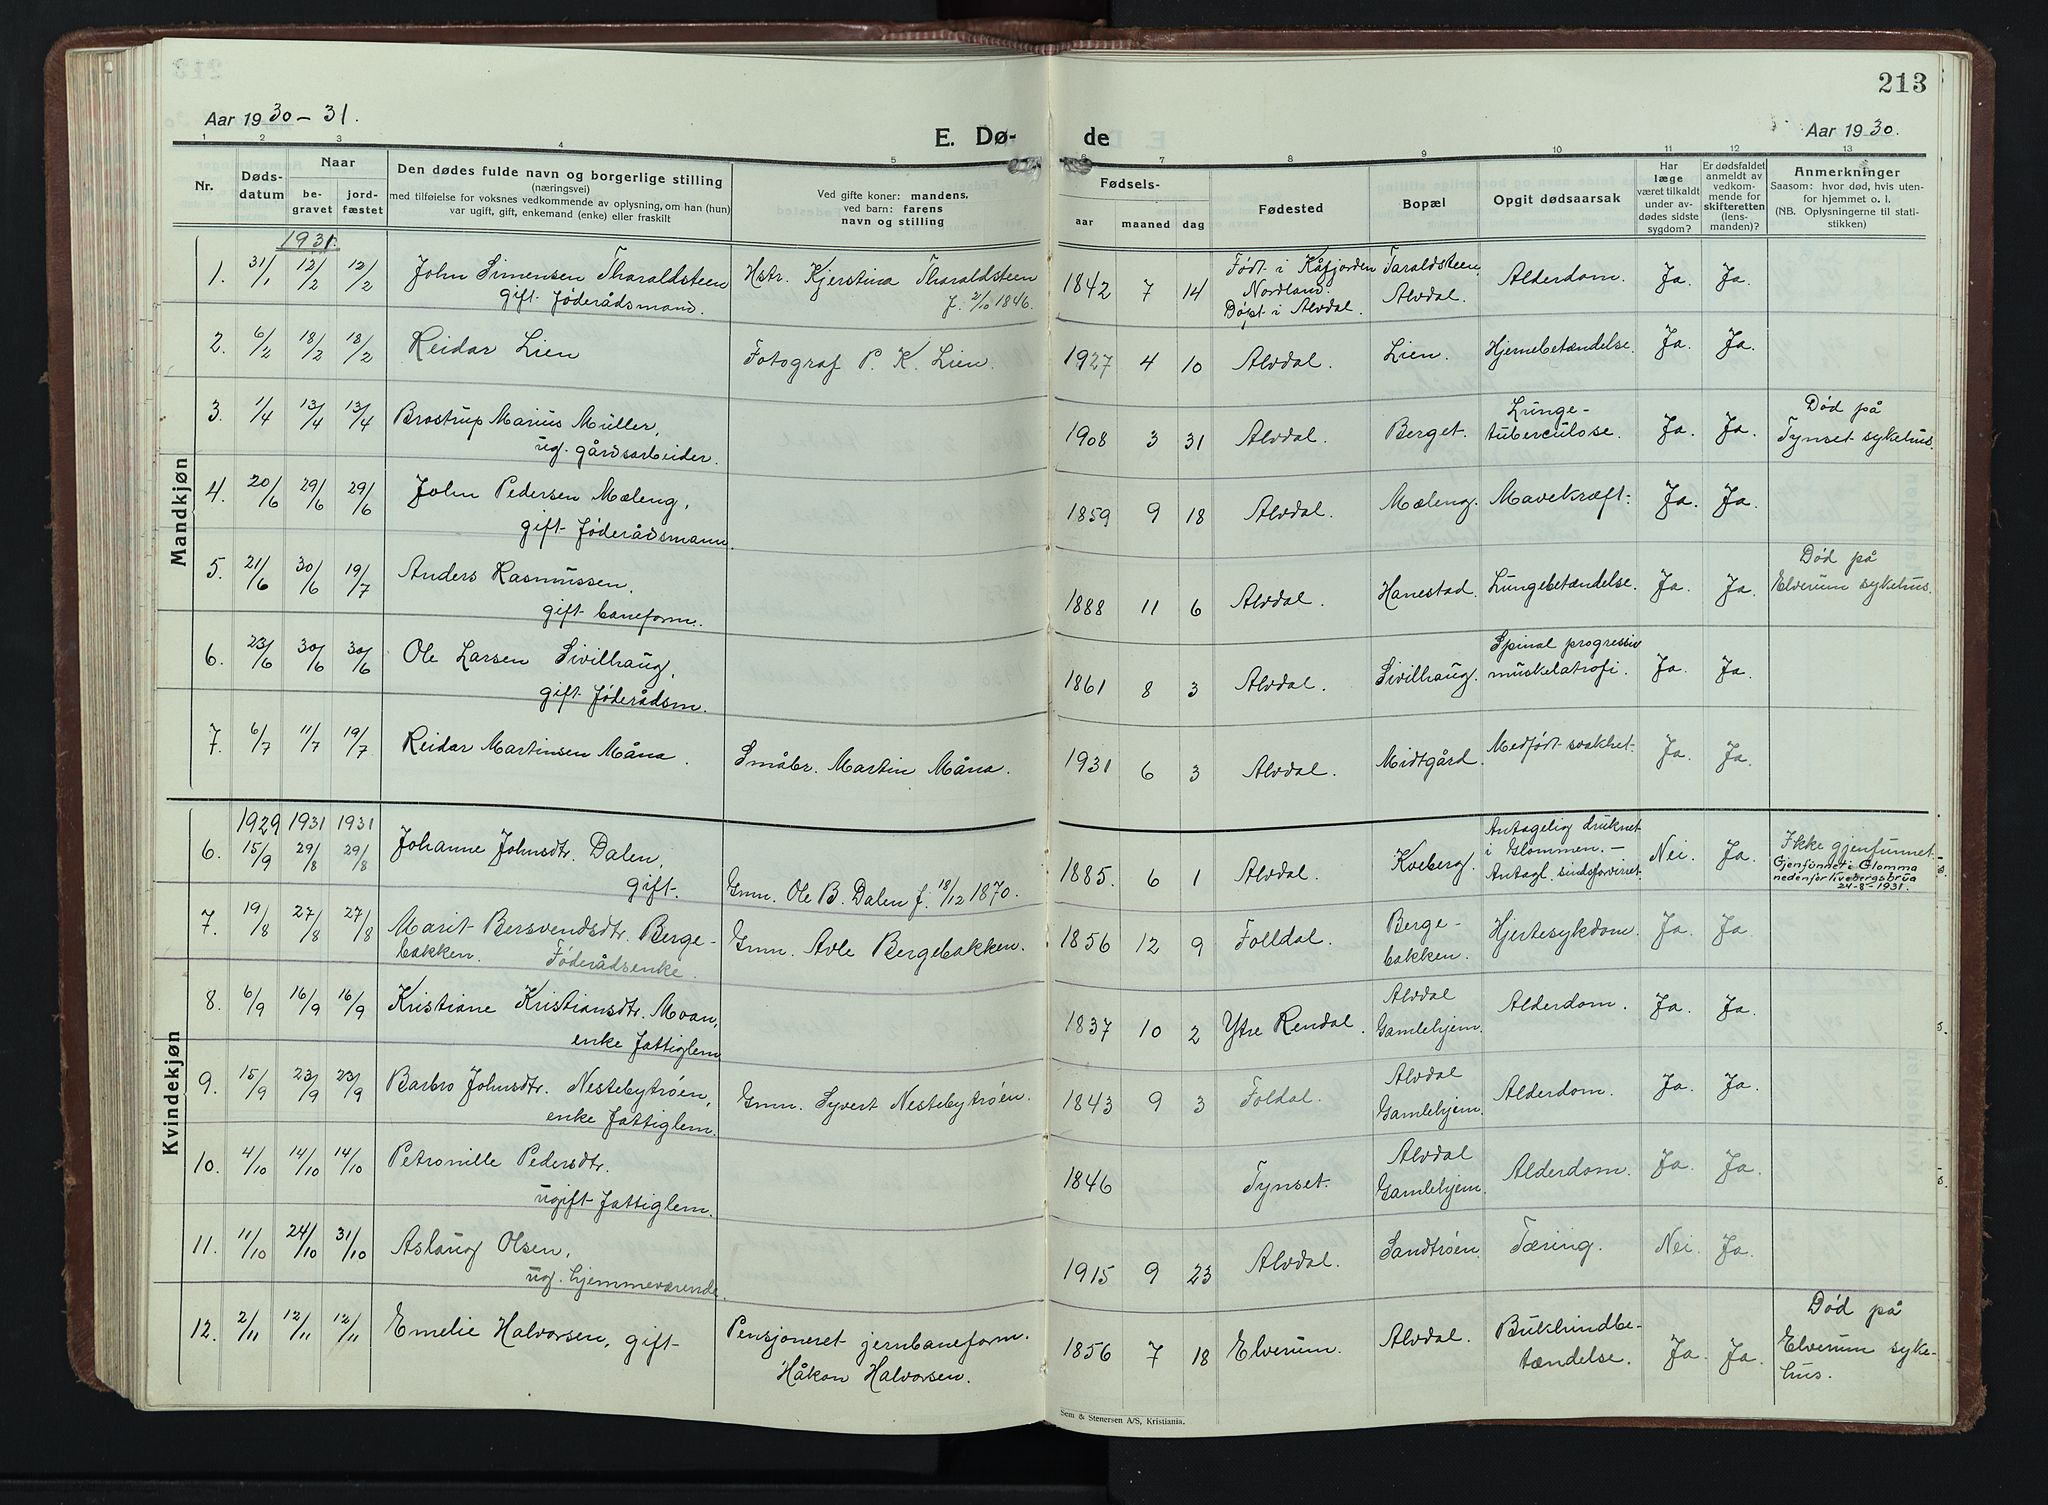 213
Aar 1930-31.
E. Dø- de
Aar 1930.
1 2 3 4 5 6 7 8 9 10 11 12 13
Nr.
Døds-
datum
Naar
be-
gravet
jord-
fæstet
Den dødes fulde navn og borgerlige stilling
(næringsvei)
med tilføielse for voksnes vedkommende av oplysning, om han (hun)
var ugift, gift, enkemand (enke) eller fraskilt
Ved gifte koner: mandens,
ved barn: farens
navn og stilling
Fødsels-
aar maaned dag
Fødested
Bopæl
Opgit dødsaarsak
Har
læge
været tilkaldt
under av-
dødes sidste
sygdom?
Er dødsfaldet
anmeldt av
vedkom-
mende for
skifteretten
(lens-
manden)?
Anmerkninger
Saasom: hvor død, hvis uten-
for hjemmet o. l.
(NB. Oplysningerne til stati-
stikken)
Mandkjøn
1931
1. 31/1 12/2 12/2 John Simensen Tharaldsteen
gift Føderådsmand.
Hstr. Kjerstina Tharaldsteen
f. 2/10 1846.
1842 7 14 Født i Kåfjorden
Nordland.
Døpt i Alvdal.
Taraldsteen,
Alvdal.
Alderdom. Ja. Ja.
2. 6/2 18/2 18/2 Reidar Lien Fotograf P. K. Lien. 1927 4 10 Alvdal. Lien. Hjernebetændelse. Ja. Ja.
3. 1/4 13/4 13/4 Brostrup Marius Müller,
ug. gårdsarbeider.
1908 3 31 Alvdal. Berget. Lunge-
tuberculose. Ja. Ja. Død på
Tynset sykehus.
4. 20/6 29/6 29/6 John Pedersen Mæleng,
gift Føderådsmann.
1859 9 18 Alvdal. Mæleng. Mavekræft. Ja. Ja.
5. 21/6 30/6 19/7 Anders Rasmussen,
gift baneform.
1888 11 6 Alvdal. Hanestad. Lungebetændelse. Ja. Ja. Død på
Elverum sykehus.
6. 23/6 30/6 30/6 Ole Larsen Sivilhaug,
gift Føderådsm.
1861 8 3 Alvdal. Sivilhaug. Spinal progressiv
muskelatrofi. Ja. Ja.
7. 6/7 11/7 19/7 Reidar Martinsen Måna. Småbr. Martin Måna. 1931 6 3 Alvdal. Midtgård. Medfødt svakhet. Ja. Ja.
Kvindekjøn
1929 1931 1931
6. 15/9 29/8 29/8 Johanne Johnsdtr. Dalen,
gift. Gmn. Ole B. Dalen f. 18/12 1870.
1885. 6 1 Alvdal. Kveberg. Antagelig druknet
i Glommen. -
Antagl. sindsforvirret. Nei. Ja. Ikke gjenfunnet.
Gjenfunnet i Glomma
nedenfor Kvebergsbrua
24-8-1931.
7. 19/8 27/8 27/8 Marit Bersvendsdtr. Berge-
bakken. Føderådsenke.
Gmn. Avle Bergebakken. 1856 12 9 Folldal. Berge-
bakken. Hjertesykdom. Ja. Ja.
8. 6/9 16/9 16/9 Kristiane Kristiansdtr. Moan,
enke Fattiglem
1837 10 2 Ytre Rendal. Alvdal
Gamlehjem. Alderdom. Ja. Ja.
9. 15/9 23/9 23/9 Barbro Johnsdtr. Nestebytrøen,
enke Fattiglem. Gmn. Syvert Nestebytrøen.
1843 9 3 Foldal. Alvdal
Gamlehjem. Alderdom. Ja. Ja.
10. 4/10 14/10 14/10 Petronille Pedersdtr.
ugift Fattiglem.
1846 Tynset. Alvdal
Gamlehjem. Alderdom. Ja. Ja.
11. 11/10 24/10 31/10 Aslaug Olsen,
ug. hjemmeværende.
1915 9 23 Alvdal. Sandtrøen. Tæring. Nei. Ja.
12. 2/11 12/11 12/11 Emelie Halvorsen, gift Pensjoneret jernbaneform.
Håkon Halvorsen.
1856 7 18 Elverum. Alvdal. Bukhindbe-
tændelse. Ja. Ja. Død på
Elverum syke-
hus.
Sem & Stenersen A/S, Kristiania.